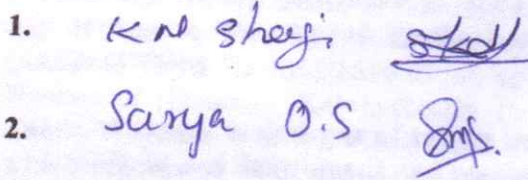 1. K N Shaji
2. Sarya O.S